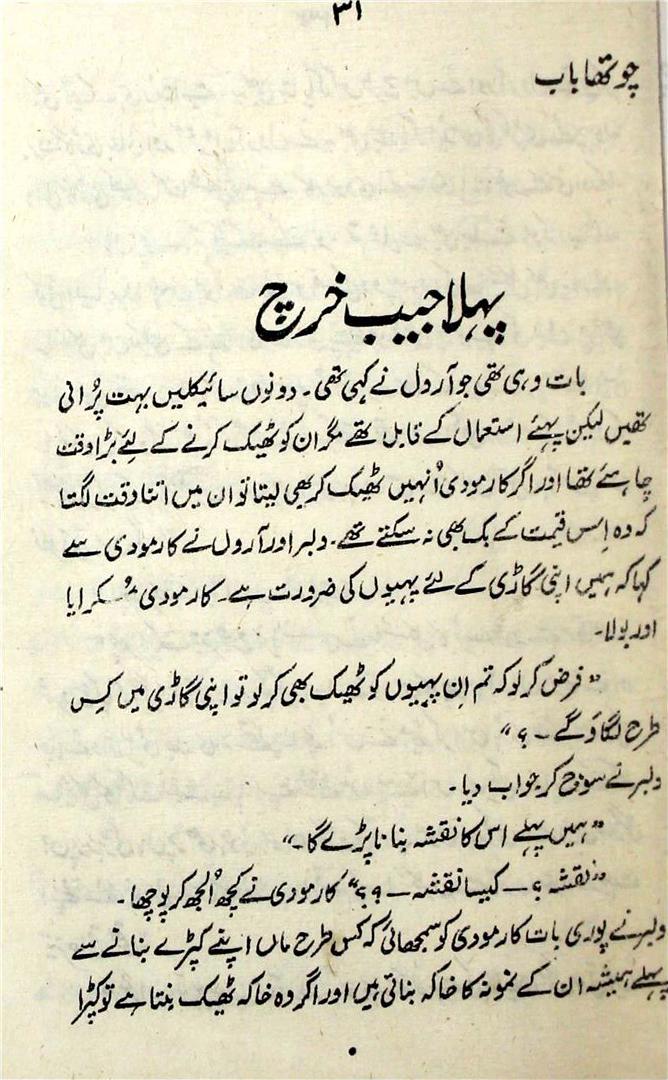 ۳۱
چوتھا باب
پہلا جیب خرچ
بات وہی تھی جو آرول نے کہی تھی۔ دونوں سائیکلیں بہت پرُانی
تھیں لیکن پہئے استعمال کے قابل تھے مگر ان کو ٹھیک کرنے کے لئے بڑا وقت
چاہئے تھا اور اگر کارمودی اُنہیں ٹھیک کر بھی لیتا تو ان میں اتنا وقت لگتا
کہ وہ اِس قیمت کے بک بھی نہ سکتے تھے۔ ولبر اور آرول نے کارمودی سے
کہا کہ ہمیں اپنی گاڑی کے لئے پہیوں کی ضرورت ہے۔ کارمودی مُسکرایا
اور بولا۔
”فرض کر لو کہ تم اِن پہیوں کو ٹھیک بھی کر لو تو اپنی گاڑی میں کِس
طرح لگاؤ گے ۔ ؟“
ولبر نے سوچ کر جواب دیا۔
”ہمیں پہلے اس کا نقشہ بنانا پڑے گا۔“
”نقشہ ؟ ۔ کیسا نقشہ ۔ ؟؟“ کارمودی نے کچھ اُلجھ کر پوچھا۔
ولبر نے پوری بات کارمودی کو سمجھائی کہ کس طرح ماں اپنے کپڑے بنانے سے
پہلے ہمیشہ ان کے نمونہ کا خاکہ بناتی ہیں اور اگر وہ خاکہ ٹھیک بنتا ہے تو کپڑا